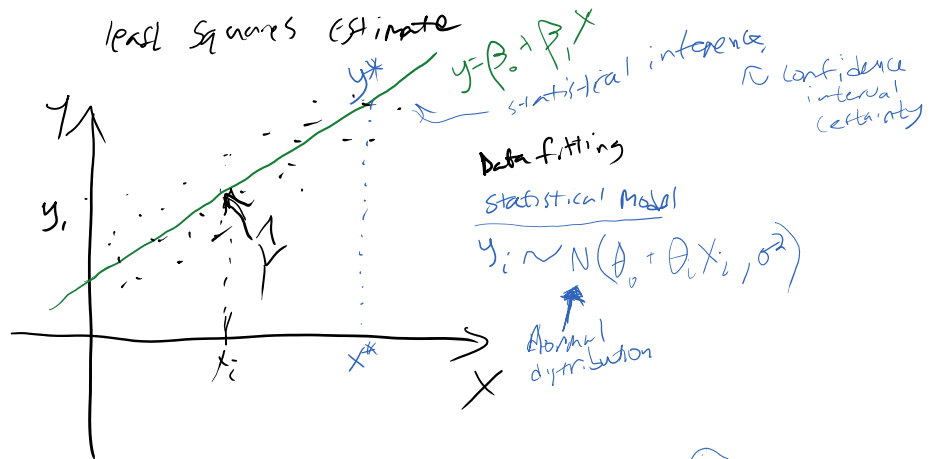 least Squares Estimate
y = β₀ + β₁ X
y*
statistical inference,
~ confidence
interval
certainty
y
Data fitting
Statistical Model
yᵢ
yᵢ ~ N(θ₀ + θᵢ Xᵢ, σ²)
Ŷ
Normal
distribution
xᵢ
x*
X